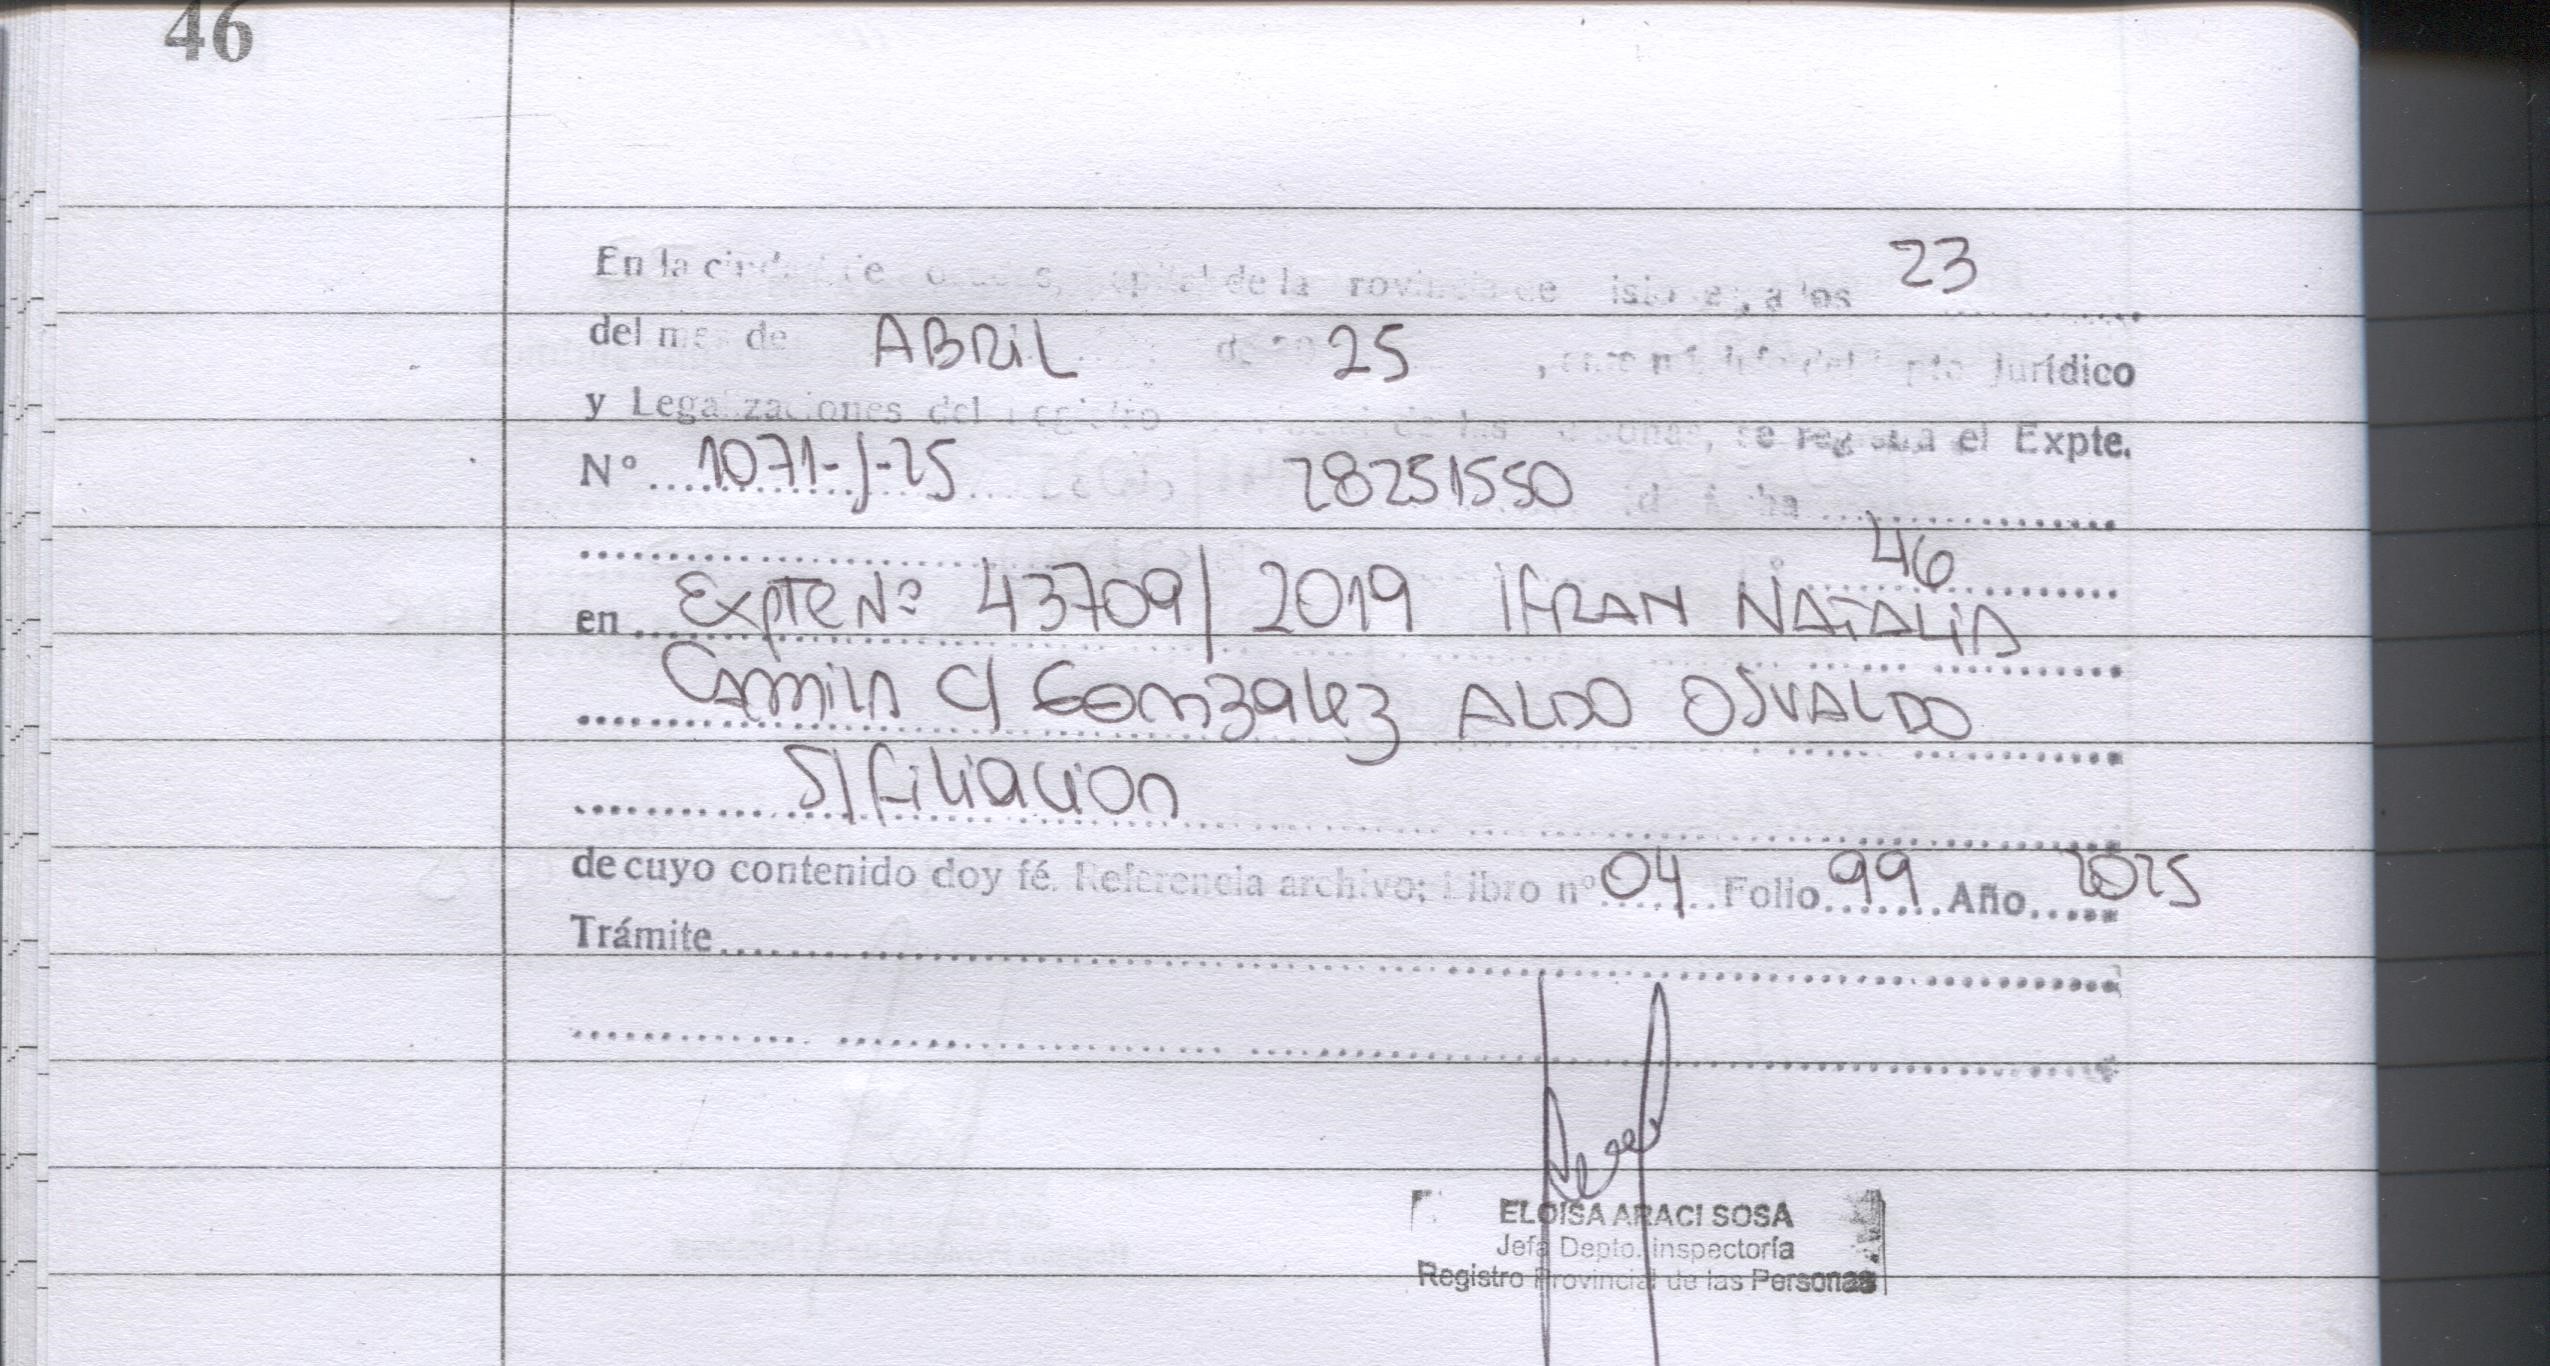 46
En la ciudad de capital de la rovincia de a los 23
del mes de ABRIL de 20 25 , Jurídico
y Legalizaciones del registro de las se registra el Expte.
N° 1071-J-25 28251550
46
en Expte Nº 43709/2019 IFRAN NATALIA
Camila C/ Gonzalez ALDO OSVALDO
S/ filiacion
de cuyo contenido doy fé. Referencia archivo: Libro nº 04 Folio 99 Año 2025
Trámite
ELOISA ARACI SOSA
Jefa Depto. Inspectoría
Registro Provincial de las Personas